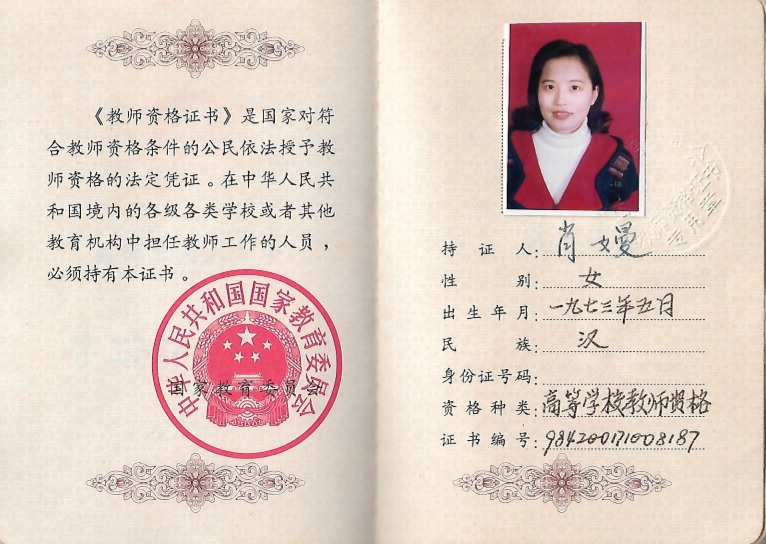 《教师资格证书》是国家对符
合教师资格条件的公民依法授予教
师资格的法定凭证。在中华人民共
和国境内的各级各类学校或者其他
教育机构中担任教师工作的人员，
必须持有本证书。
中华人民共和国国家教育委员会
国家教育委员会
持证人：肖嫚
性别：女
出生年月：一九七三年五月
民族：汉
身份证号码：
资格种类：高等学校教师资格
证书编号：984200171008187
专用章